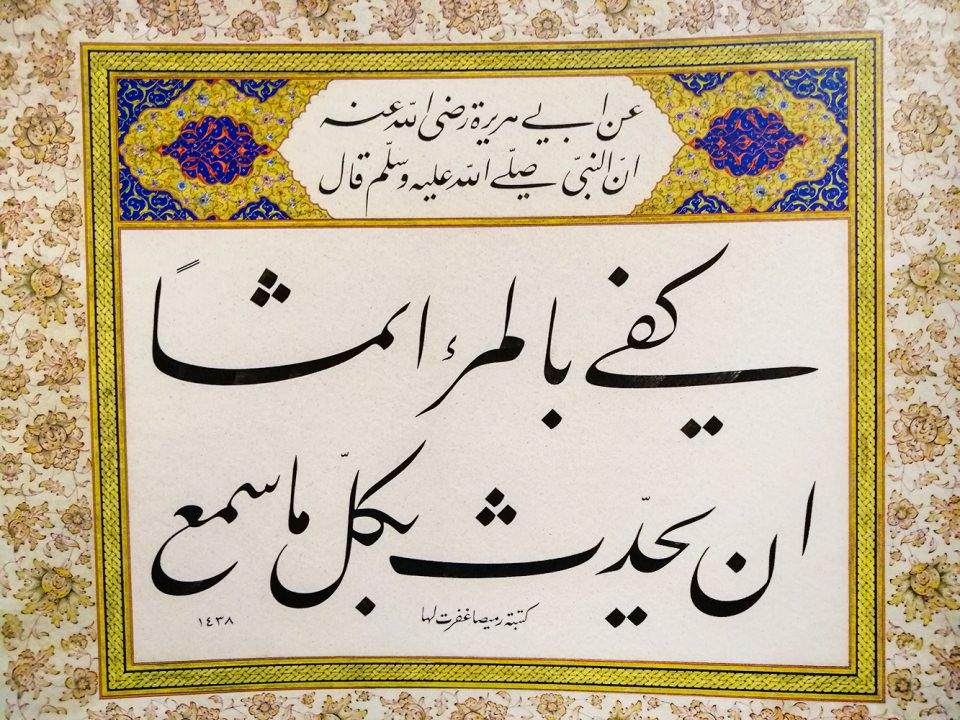 عن ابي هريرة رضى الله عنه
انّ النبيّ صلّے الله عليه وسلّم قال
كفے بالمرء اثمًا
ان يحدّث بكلّ ما سمع
كتبته رميصا غفرت لها
١٤٣٨